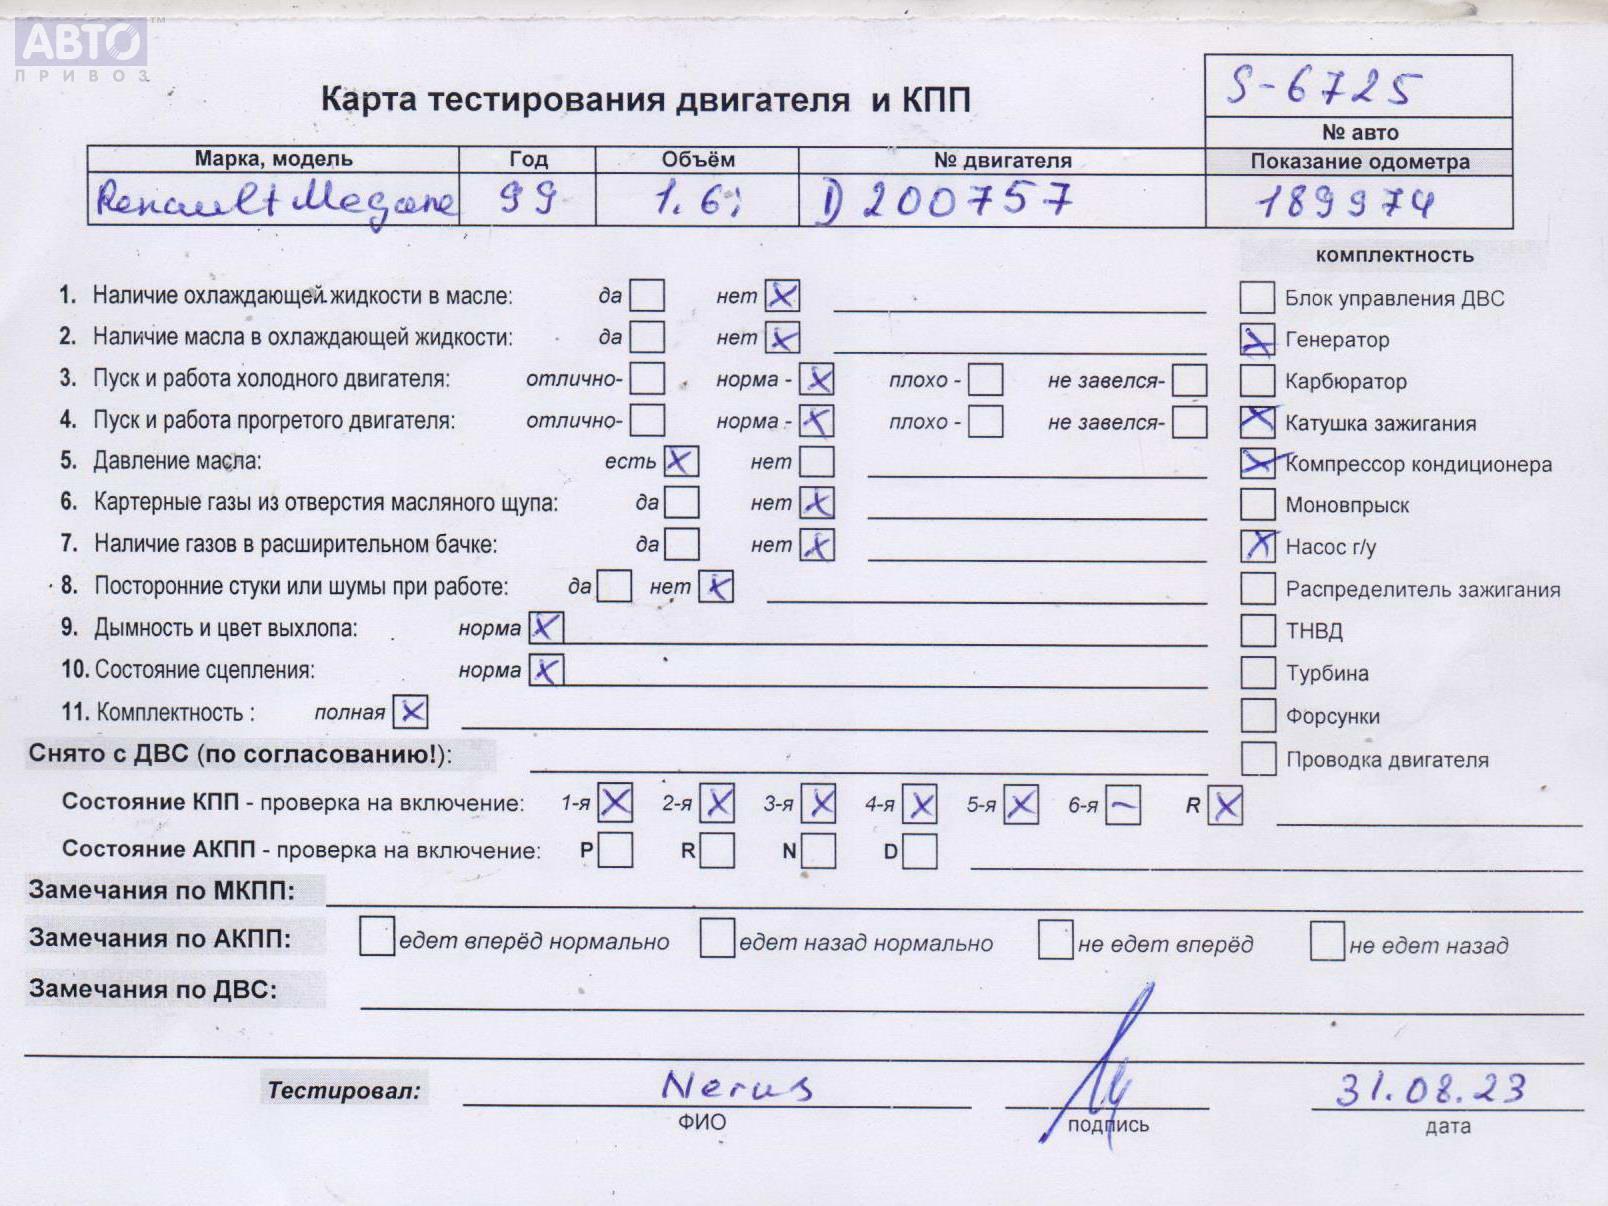 АВТО™
ПРИВОЗ
S-6725
Карта тестирования двигателя и КПП
№ авто
Марка, модель Год Объём № двигателя Показание одометра
Renault Megane 99 1.6i D200757 189974
комплектность
1. Наличие охлаждающей жидкости в масле: да нет X Блок управления ДВС
2. Наличие масла в охлаждающей жидкости: да нет X X Генератор
3. Пуск и работа холодного двигателя: отлично- норма - X плохо - не завелся- Карбюратор
4. Пуск и работа прогретого двигателя: отлично- норма - X плохо - не завелся- X Катушка зажигания
5. Давление масла: есть X нет X Компрессор кондиционера
6. Картерные газы из отверстия масляного щупа: да нет X Моновпрыск
7. Наличие газов в расширительном бачке: да нет X X Насос г/у
8. Посторонние стуки или шумы при работе: да нет X Распределитель зажигания
9. Дымность и цвет выхлопа: норма X ТНВД
10. Состояние сцепления: норма X Турбина
11. Комплектность : полная X Форсунки
Снято с ДВС (по согласованию!): Проводка двигателя
Состояние КПП - проверка на включение: 1-я X 2-я X 3-я X 4-я X 5-я X 6-я – R X
Состояние АКПП - проверка на включение: P R N D
Замечания по МКПП:
Замечания по АКПП: едет вперёд нормально едет назад нормально не едет вперёд не едет назад
Замечания по ДВС:
Тестировал: Nerus 31.08.23
ФИО подпись дата